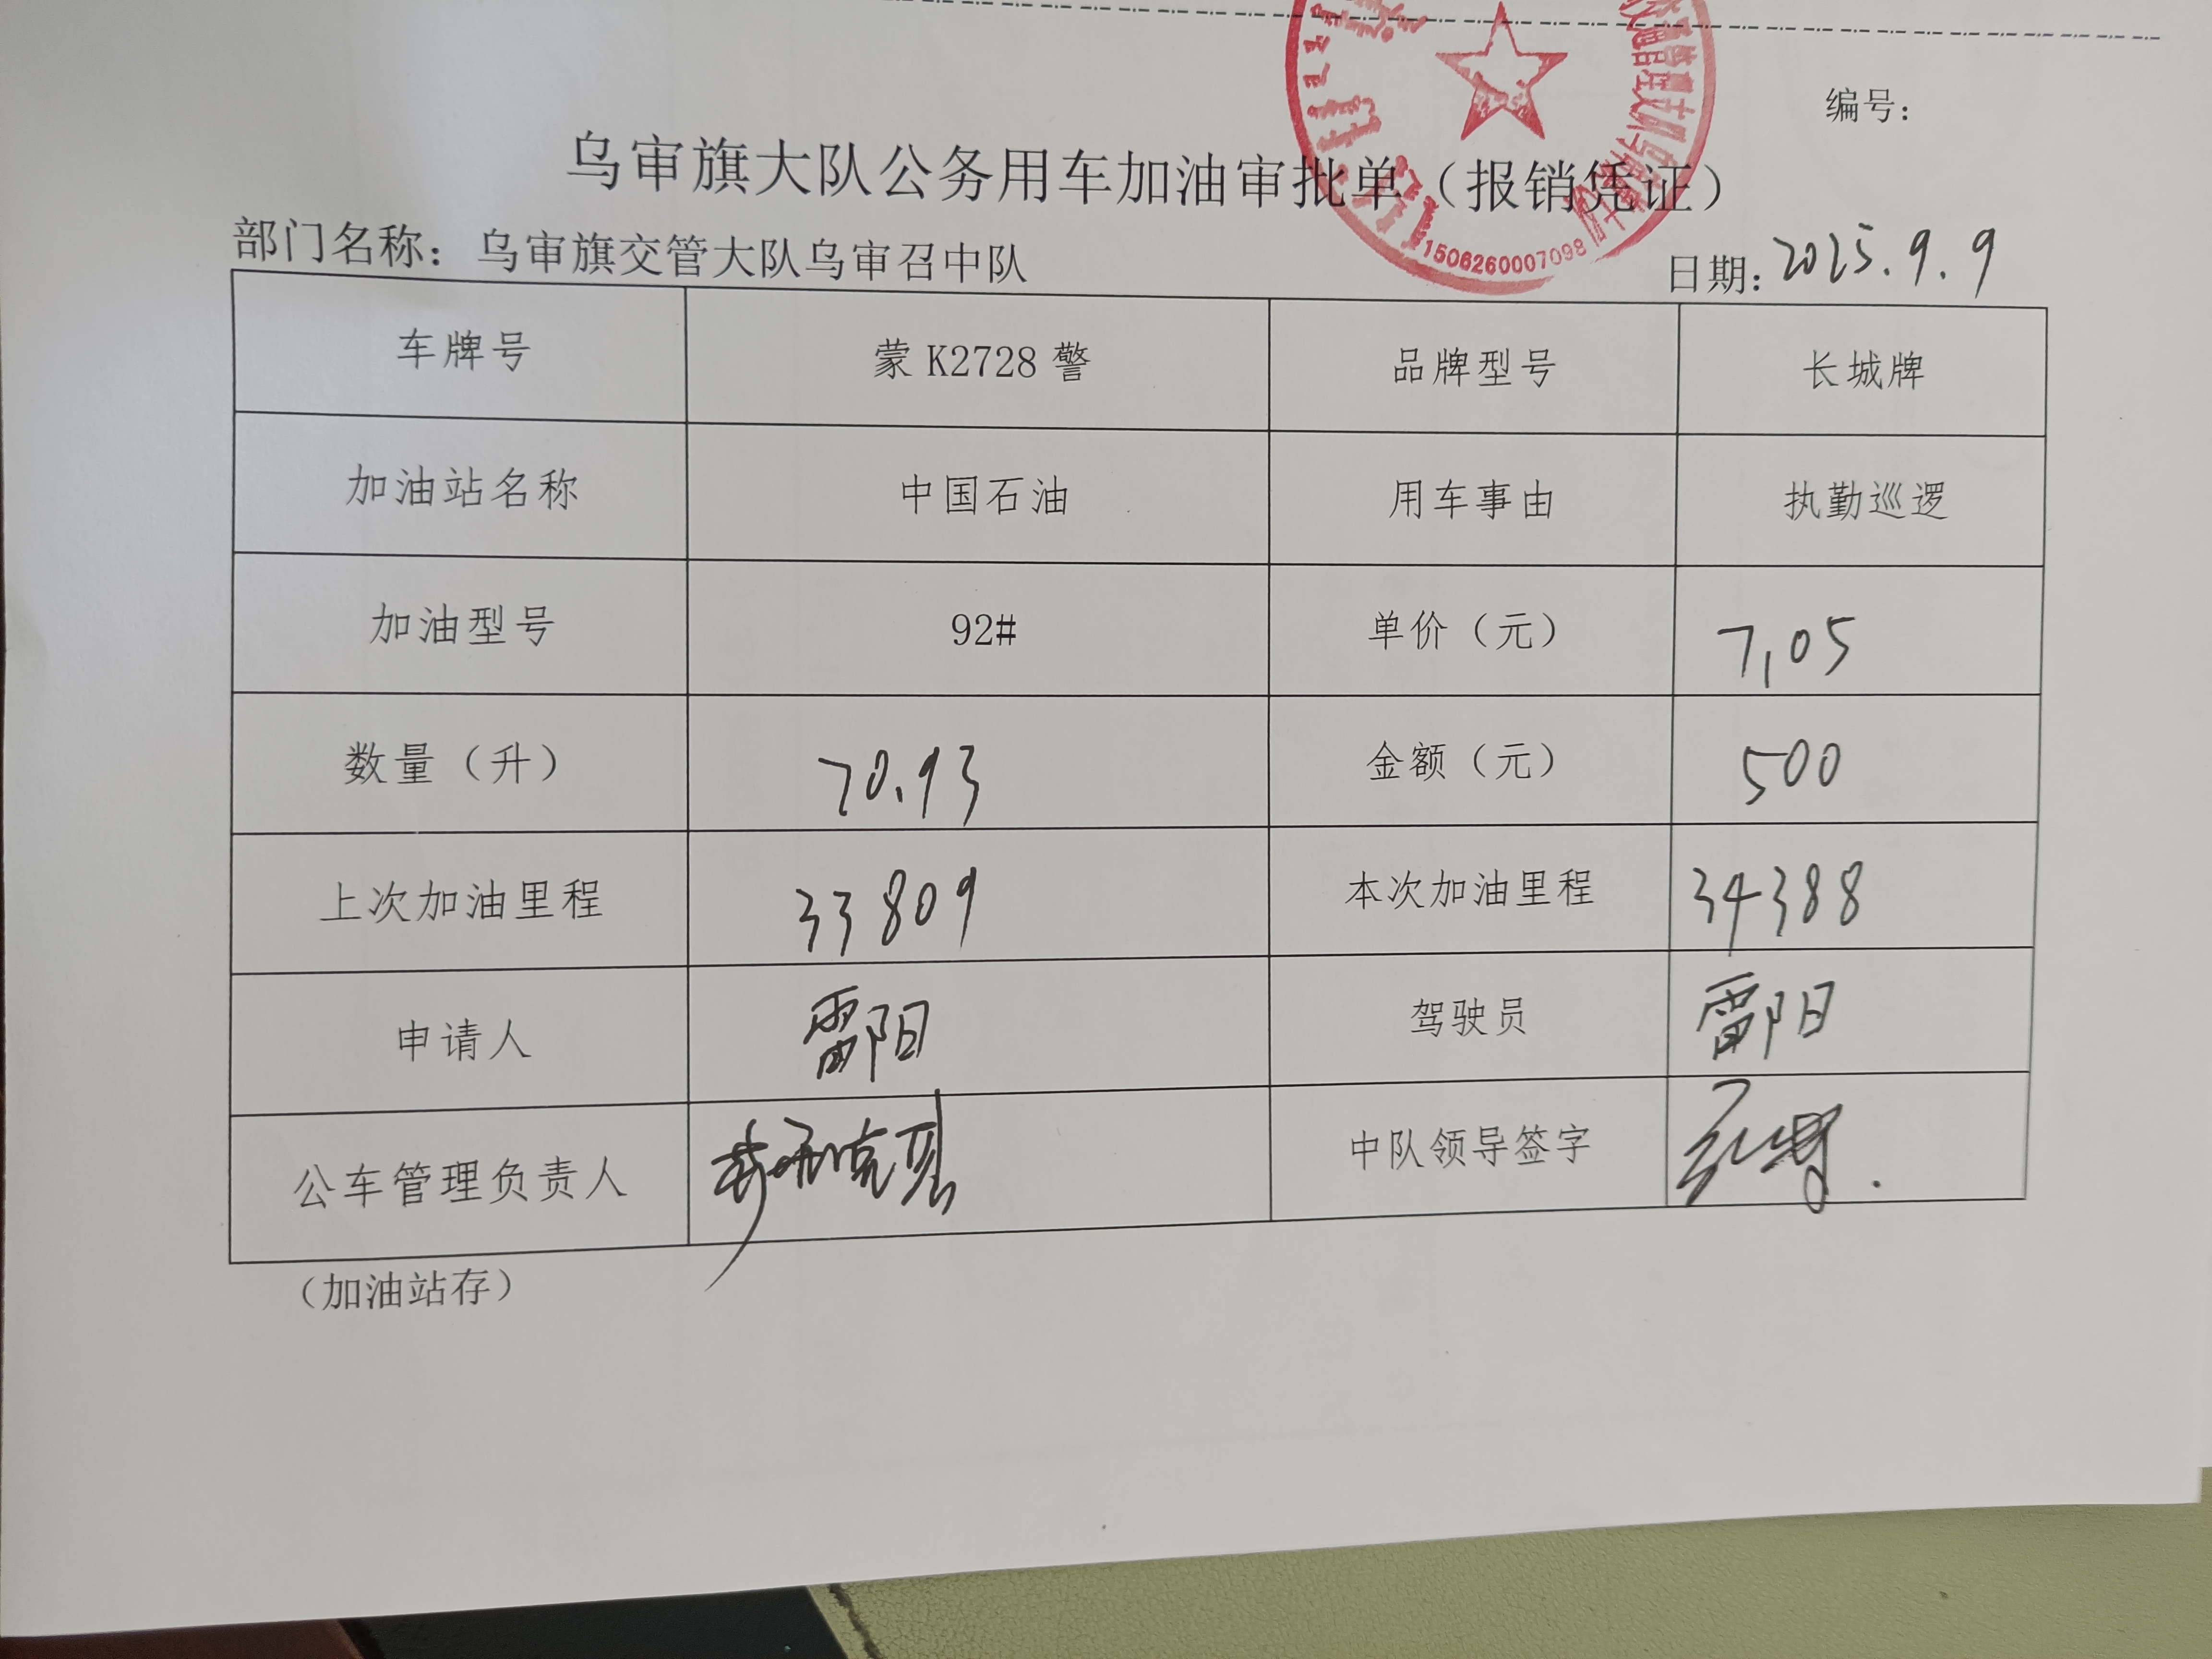 编号：
乌审旗大队公务用车加油审批单（报销凭证）
1506260007098
部门名称：乌审旗交管大队乌审召中队 日期：2025.9.9
车牌号 蒙K2728警 品牌型号 长城牌
加油站名称 中国石油 用车事由 执勤巡逻
加油型号 92# 单价（元） 7,05
数量（升） 70.93 金额（元） 500
上次加油里程 33809 本次加油里程 34388
申请人 雷阳 驾驶员 雷阳
公车管理负责人 中队领导签字
（加油站存）